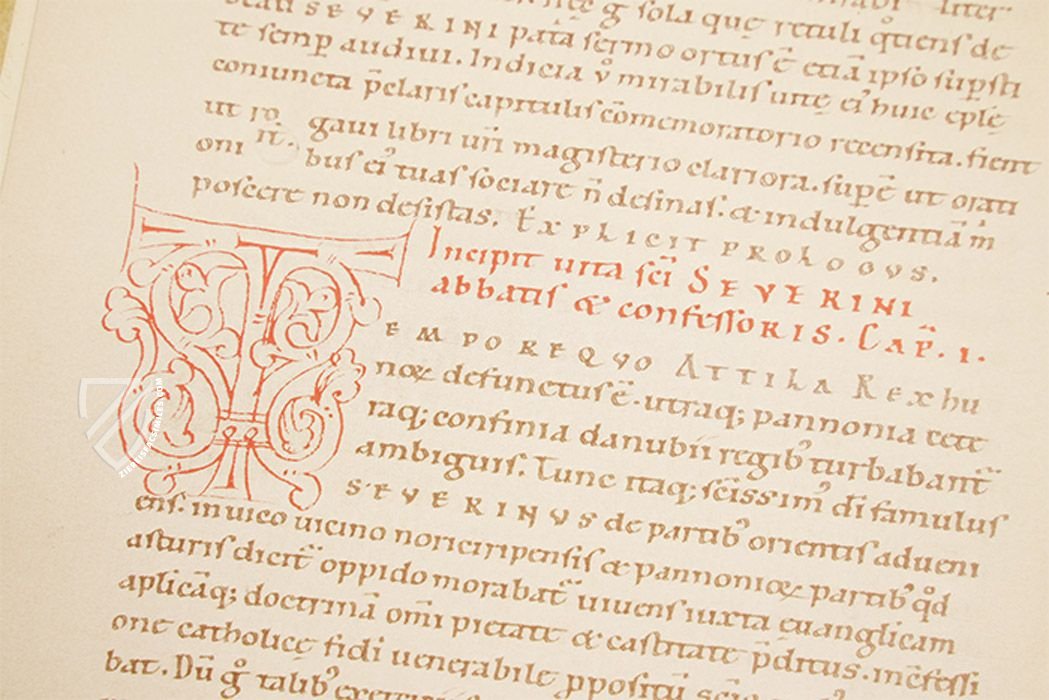 SEVERINI pat̄a sermo ortus ē etiā ipso sup̱sti
te semp̱ audiui. Indicia v̊ mirabilis uitę ei᾽ huic eplę
coniuncta p̄claris capitulis cōmemoratorio recensita. fient
ut ro gaui libri ur̄i magisterio clariora. sup̱ē ut orati
oni n̄. bus ei᾽ tuas sociare n̄ desinas. & indulgentiā m̄
poscere non desistas. EXPLICIT PROLOGVS.
Incipit uita sc̄i SEVERINI
abbatis & confessoRIS. CAP̄. I.
TEMPOREQVO ATTILA REX hu
noꝝ defunctus ē. utraq; pannonia cete
raq; confinia danubii regib᾽ turbabant᾽
ambiguis. Tunc itaq; sc̄issim᾽ dī famulus
SEVERINVS de partib᾽ orientis adueni
ens. in uico uicino noriciripensis & pannonioꝝ partib᾽ qd̄
asturis dicit᾽ oppido morabat᾽ uiuens iuxta euanglicam
aplicāq; doctrinā om̄i pietate & castitate p̄ditus. in cōfessi
one catholicę fidi uenerabile p̱positū
bat. Dū g̊ talib᾽
ZIEREISFACSIMILES.COM